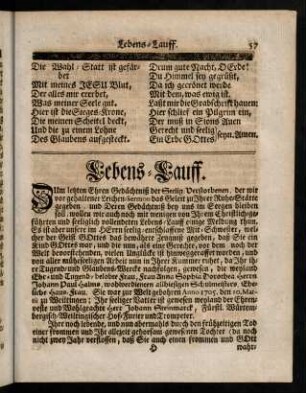 Lebens-Lauff. 57
Die Wahl-Statt ist gefär-
bet
Mit meines JESU Blut,
Der alles mir ererbet,
Was meiner Seele gut.
Hier ist die Sieges-Krone,
Die meinen Scheitel deckt,
Und die zu einem Lohne
Des Glaubens aufgesteckt.
Drum gute Nacht, O Erde!
Du Himmel sey gegrüst,
Da ich gecrönet werde
Mit dem, was ewig ist.
Last mir die Grabschrifft hauen:
Hier schlief ein Pilgrim ein,
Der muß in Sions Auen
Gerecht und seelig
Ein Erbe GOttes } seyn. Amen.
Lebens-Lauff.
Zum letzten Ehren Gedächtniß der Seelig-Verstorbenen, der wir
vor gehaltener Leichen-Sermon das Geleite zu Ihrer Ruhe-Stätte
gegeben und Deren Gedächtniß bey uns im Seegen bleiben
soll, wollen wir auch noch mit wenigen von Ihrem Christlich ge-
führten und seelig vollendeten Lebens-Lauff einige Meldung thun.
Es ist aber unsere im HErrn seelig-entschlaffene Mit-Schwester, wel-
cher der Geist GOttes das bewährte Zeugniß gegeben, daß Sie ein
Kind GOttes war, und die nun, als eine Gerechte, vor dem, was noch in
der Welt bevorsteht, vielen Unglück ist hinweggeraffet worden, und
also von aller Ihrer Mühe und Arbeit nun in Ihrer Kammer ruhet, da Ihr ih-
re Tugend und Glaubens-Wercke nachfolgen, gewesen, die weyland
Edle und Tugend-belobte Frau, Frau Anna Sophia Dorothea Herrn
Johann Paul Hahns, wohlverdienten allhiesigen Schulmeisters, Ehe-
liche Haus-Frau. Sie war zur Welt gebohren Anno 1705. den 10. Mar-
tii zu Weiltingen; Ihr seeliger Vatter ist gewesen weyland der Ehren-
veste und Wohlgeachte Herr Johann Streinmarck, Fürstl. Würtem-
bergisch-Weiltingischer Hof-Furier und Trompeter.
Ihre noch lebende, und nun abermahls durch den frühzeitigen Tod
einer frommen und Ihr allezeit gehorsam-gewesenen Tochter (da noch
nicht zwey Jahr verflossen, daß Sie auch einen frommen und GOtt
wahr-